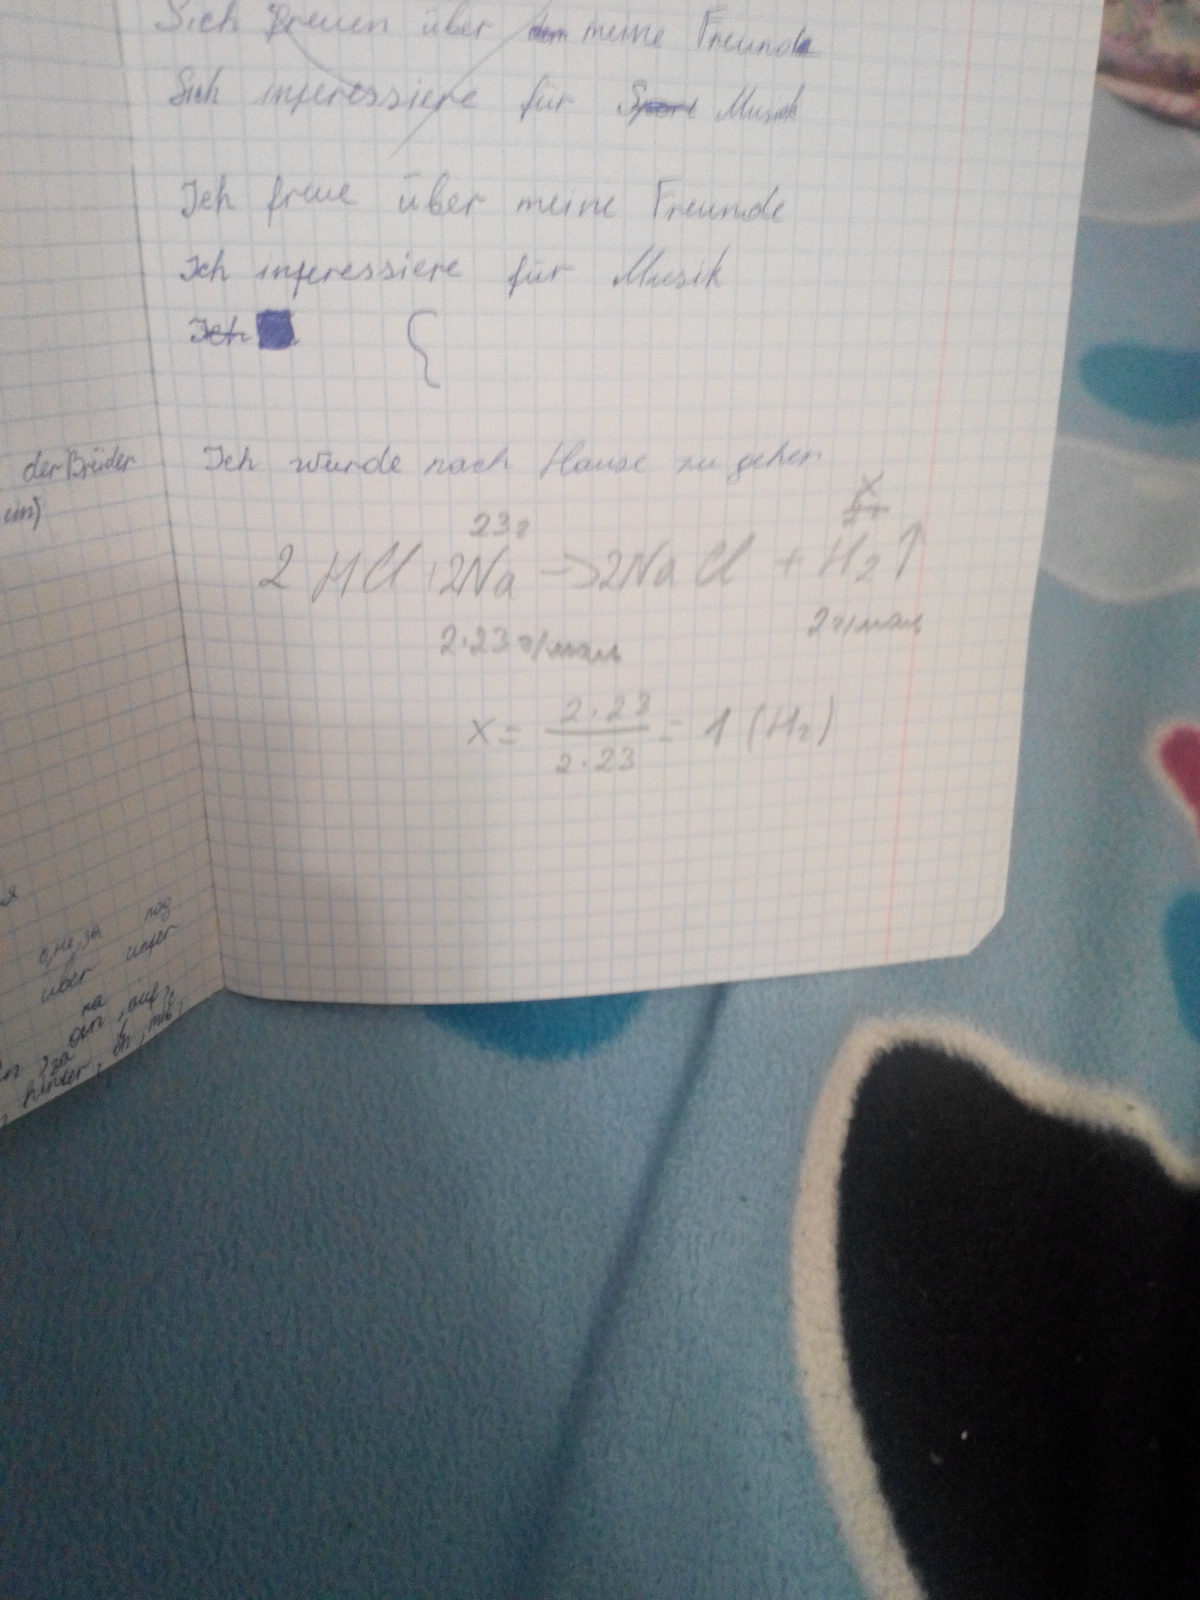 Sich freuen über dem meine Freunde
Sich interessiere für Sport Musik
Ich freue über meine Freunde
Ich interessiere für Musik
Ich
{
der Brüder
ein)
Ich wurde nach Hause zu gehen
23г
x
2 HCl + 2Na → 2NaCl + H2↑
2·23 г/моль
2 г/моль
x = 2·23 / 2·23 = 1 (H2)
über unter
на
an, auf,
hinter, in,